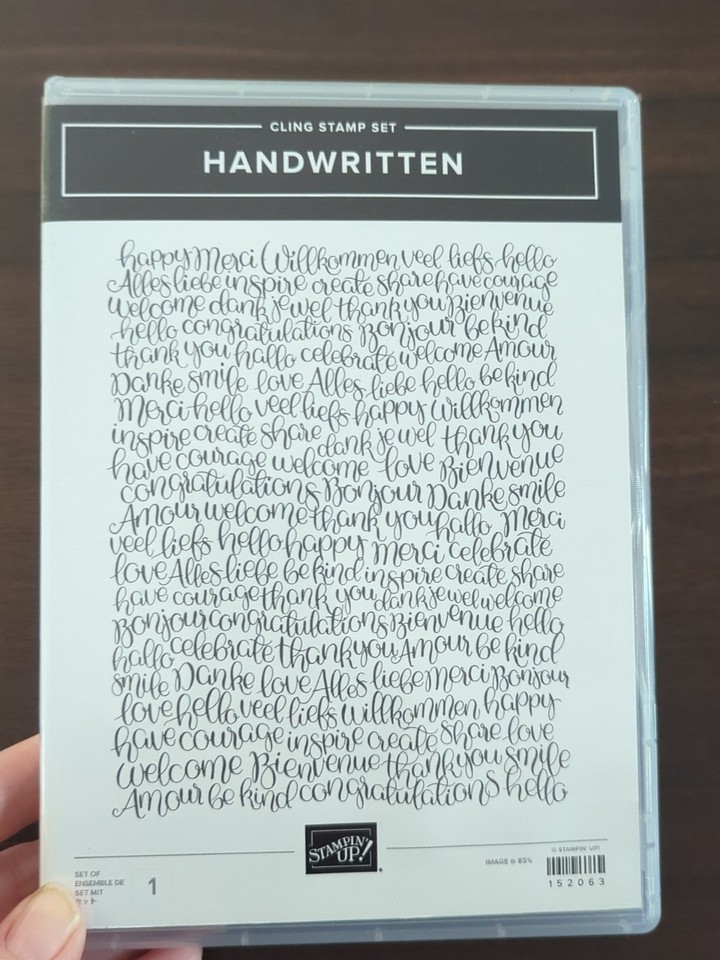 CLING STAMP SET
HANDWRITTEN
happy Merci Willkommen veel liefs hello
Alles liebe inspire create share have courage
welcome dank je wel thank you Bienvenue
hello congratulations Bonjour be kind
thank you hallo celebrate welcome Amour
Danke smile love Alles liebe hello be kind
Merci hello veel liefs happy Willkommen
inspire create share dank je wel thank you
have courage welcome love Bienvenue
congratulations Bonjour Danke smile
Amour welcome thank you hallo Merci
veel liefs hello happy Merci celebrate
love Alles liebe be kind inspire create share
have courage thank you dank je wel welcome
Bonjour congratulations Bienvenue hello
hallo celebrate thank you Amour be kind
smile Danke love Alles liebe Merci Bonjour
love hello veel liefs Willkommen happy
have courage inspire create share love
welcome Bienvenue thank you smile
Amour be kind congratulations hello
STAMPIN' UP!®
SET OF
ENSEMBLE DE
SET MIT
セット
1
IMAGE @ 85%
© STAMPIN' UP!
152063